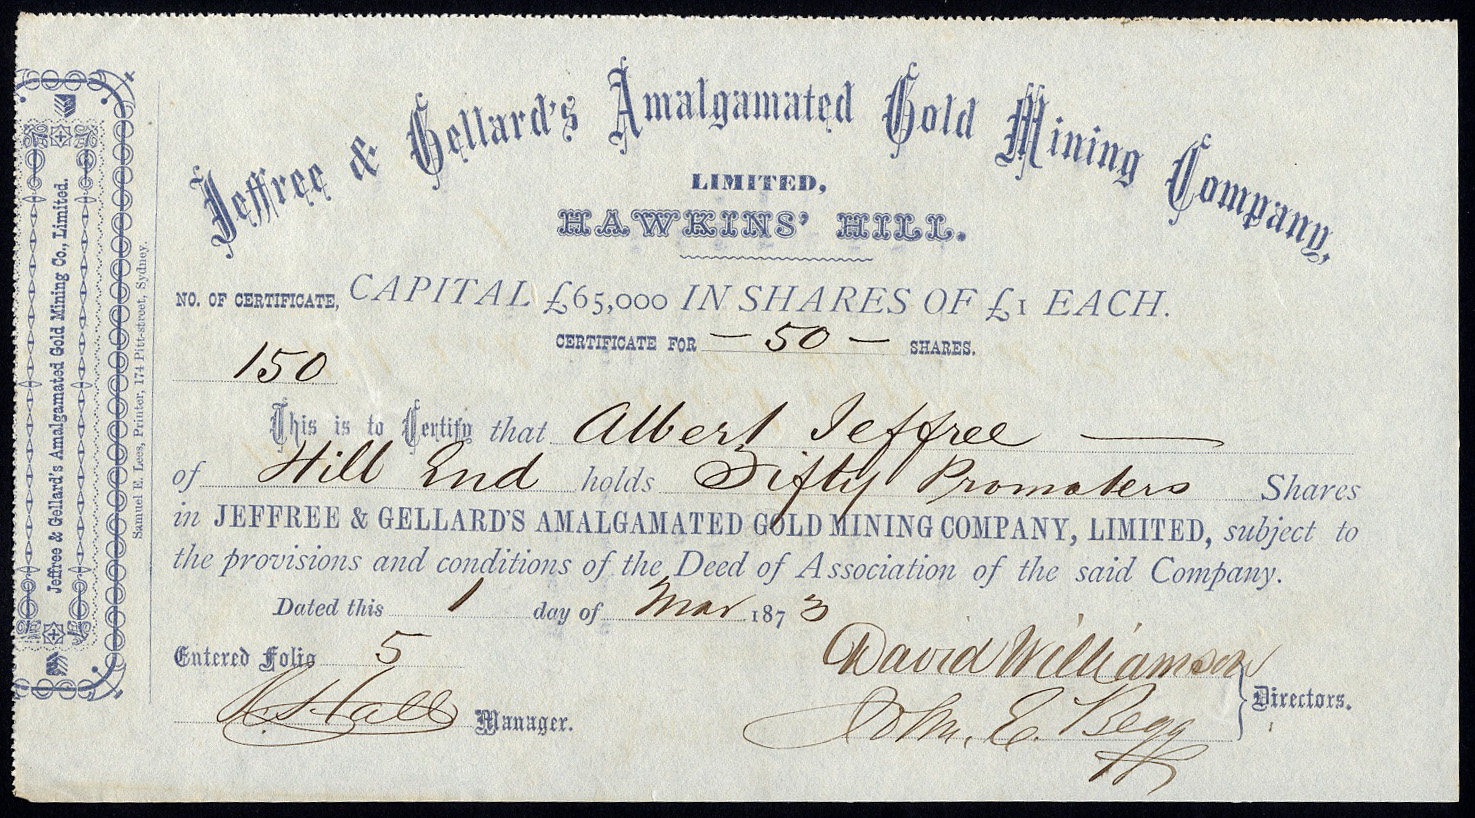 Jeffree & Gellard's Amalgamated Gold Mining Company,
LIMITED,
HAWKINS' HILL.
CAPITAL £65,000 IN SHARES OF £1 EACH.
NO. OF CERTIFICATE,
150
CERTIFICATE FOR — 50 — SHARES.
This is to Certify that Albert Jeffree —
of Hill End holds Fifty Promoters Shares
in JEFFREE & GELLARD'S AMALGAMATED GOLD MINING COMPANY, LIMITED, subject to
the provisions and conditions of the Deed of Association of the said Company.
Dated this 1 day of Mar 1873
Entered Folio 5
David Williamson
Hall Manager.
John. E. Begg
Directors.
Jeffree & Gellard's Amalgamated Gold Mining Co., Limited.
Samuel E. Lees, Printer, 174 Pitt-street, Sydney.